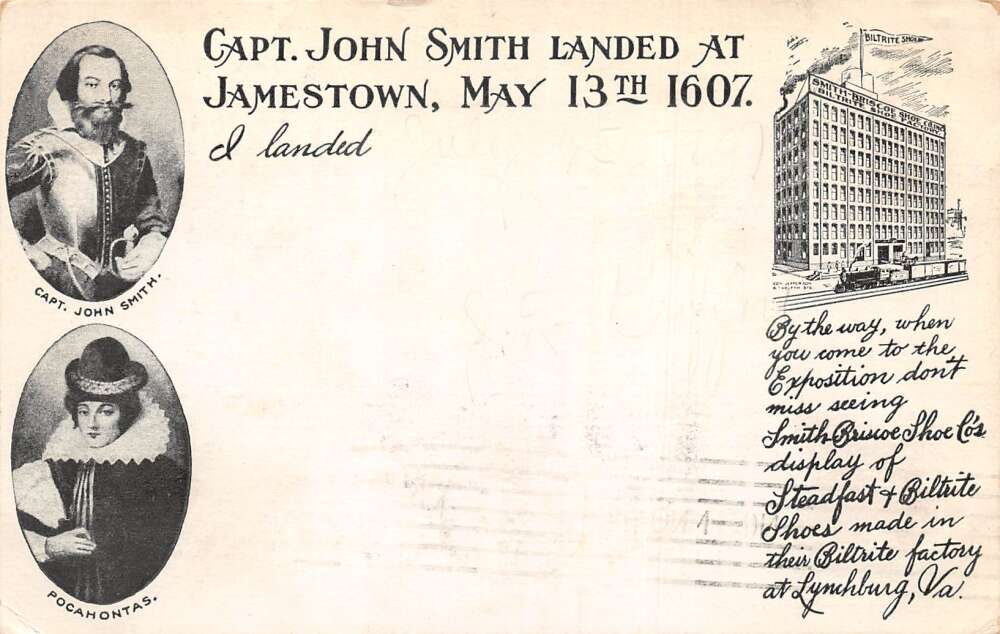 CAPT. JOHN SMITH LANDED AT
JAMESTOWN, MAY 13TH 1607.
I landed
CAPT. JOHN SMITH.
POCAHONTAS.
BILTRITE SHOE
SMITH-BRISCOE SHOE CO. INC.
BILTRITE SHOE FACTORY
By the way, when
you come to the
Exposition don't
miss seeing
Smith Briscoe Shoe Co's
display of
Steadfast & Biltrite
Shoes made in
their Biltrite factory
at Lynchburg, Va.